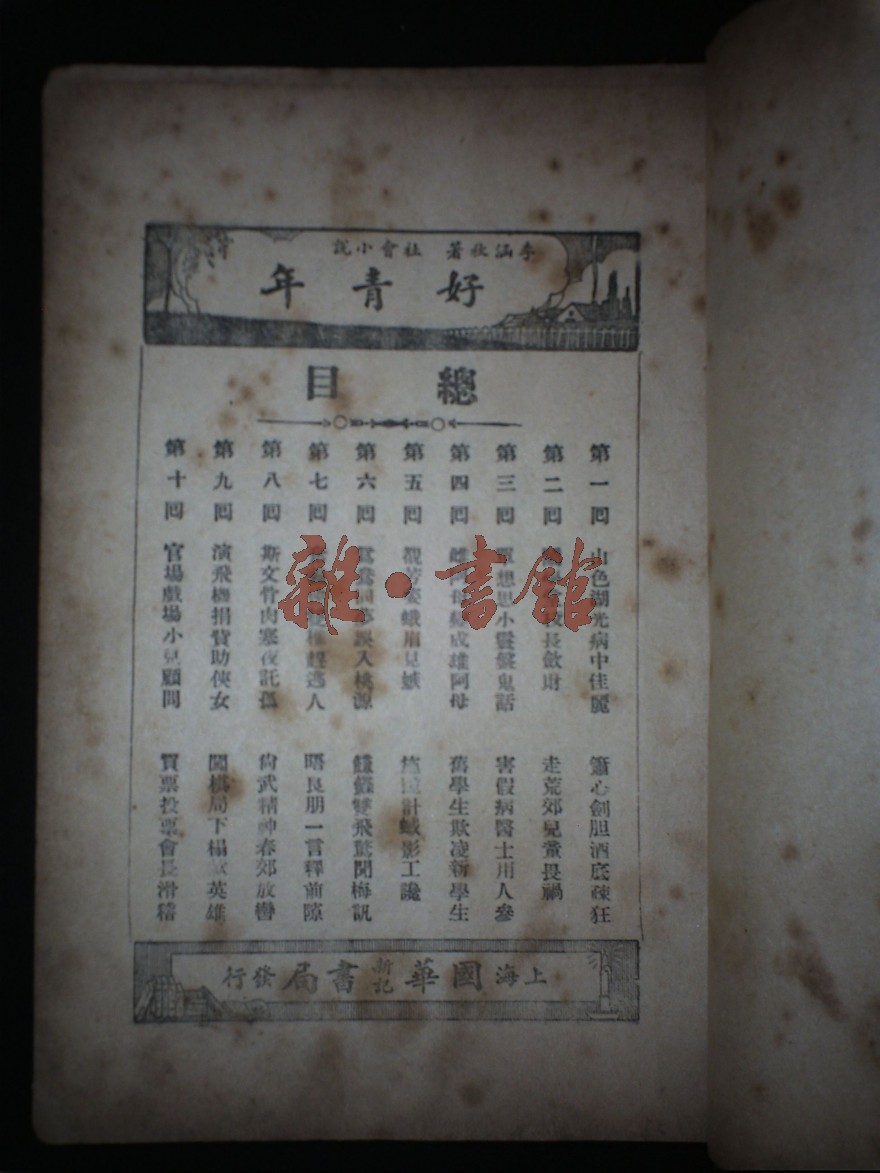 李涵秋著 社會小説
好青年
總目
第一回 山色湖光病中佳麗 簫心劍胆酒底疎狂
第二回 長斂財 走荒郊兒童畏禍
第三回 單想思小鬟盤鬼話 害假病醫士用人參
第四回 成雄阿母 舊學生欺凌新學生
第五回 蛾眉見嫉 計蜮影工讒
第六回 誤入桃源 雙飛驚聞梅訊
第七回 趕逃人 晤良朋一言釋前隙
第八回 斯文骨肉寒夜託孤 尙武精神春郊放轡
第九回 演飛機捐貲助俠女 閱棋局下榻 英雄
第十回 官場戲場小兒顧問 買票投票會長滑稽
上海國華新記書局發行
雜·書館